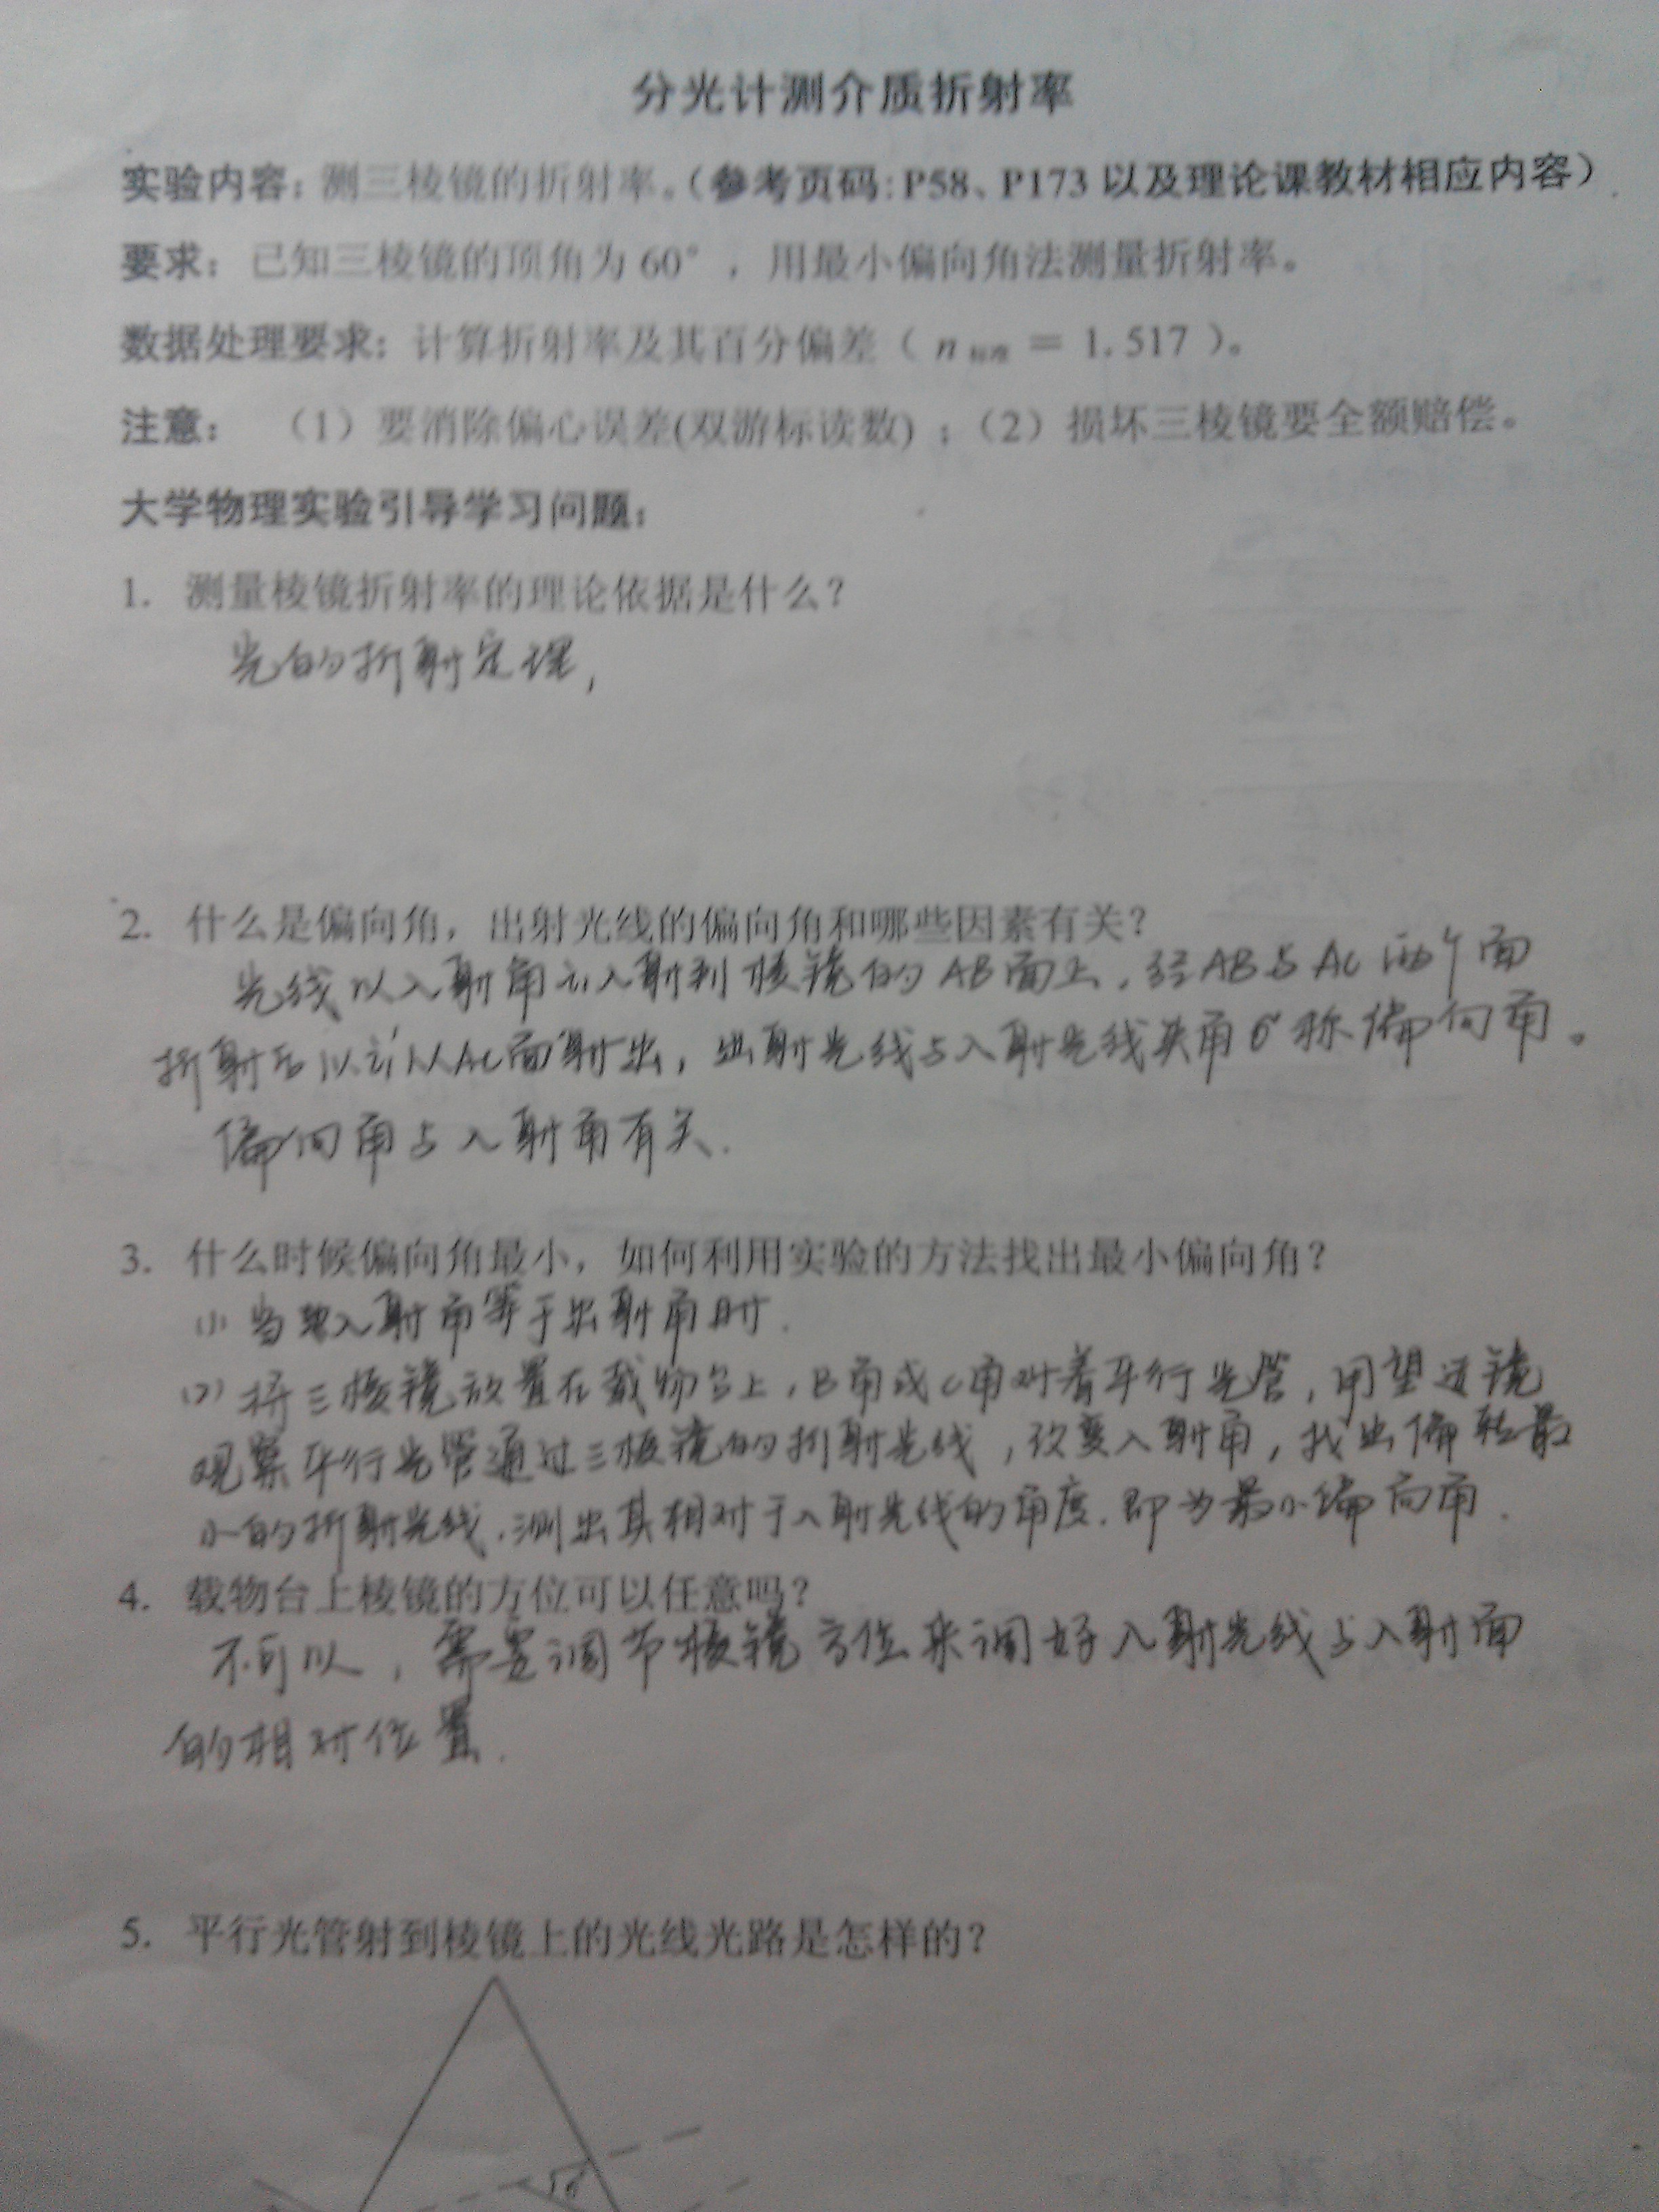 分光计测介质折射率
实验内容：测三棱镜的折射率。（参考页码：P58、P173 以及理论课教材相应内容）
要求：已知三棱镜的顶角为 60°，用最小偏向角法测量折射率。
数据处理要求：计算折射率及其百分偏差（ n标准 = 1.517 ）。
注意： （1）要消除偏心误差(双游标读数)；（2）损坏三棱镜要全额赔偿。
大学物理实验引导学习问题：
1. 测量棱镜折射率的理论依据是什么？
光的折射定理，
2. 什么是偏向角，出射光线的偏向角和哪些因素有关？
光线以入射角i₁入射到棱镜的AB面上，经AB与AC两个面
折射后以i₁'从AC面射出，出射光线与入射光线夹角δ称偏向角。
偏向角与入射角有关.
3. 什么时候偏向角最小，如何利用实验的方法找出最小偏向角？
(1) 当入射角等于出射角时.
(2) 将三棱镜放置在载物台上，B角或C角对着平行光管，用望远镜
观察平行光管通过三棱镜的折射光线，改变入射角，找出偏转最
小的折射光线.测出其相对于入射光线的角度.即为最小偏向角.
4. 载物台上棱镜的方位可以任意吗？
不可以，需要调节棱镜方位来调好入射光线与入射面
的相对位置.
5. 平行光管射到棱镜上的光线光路是怎样的？
δ